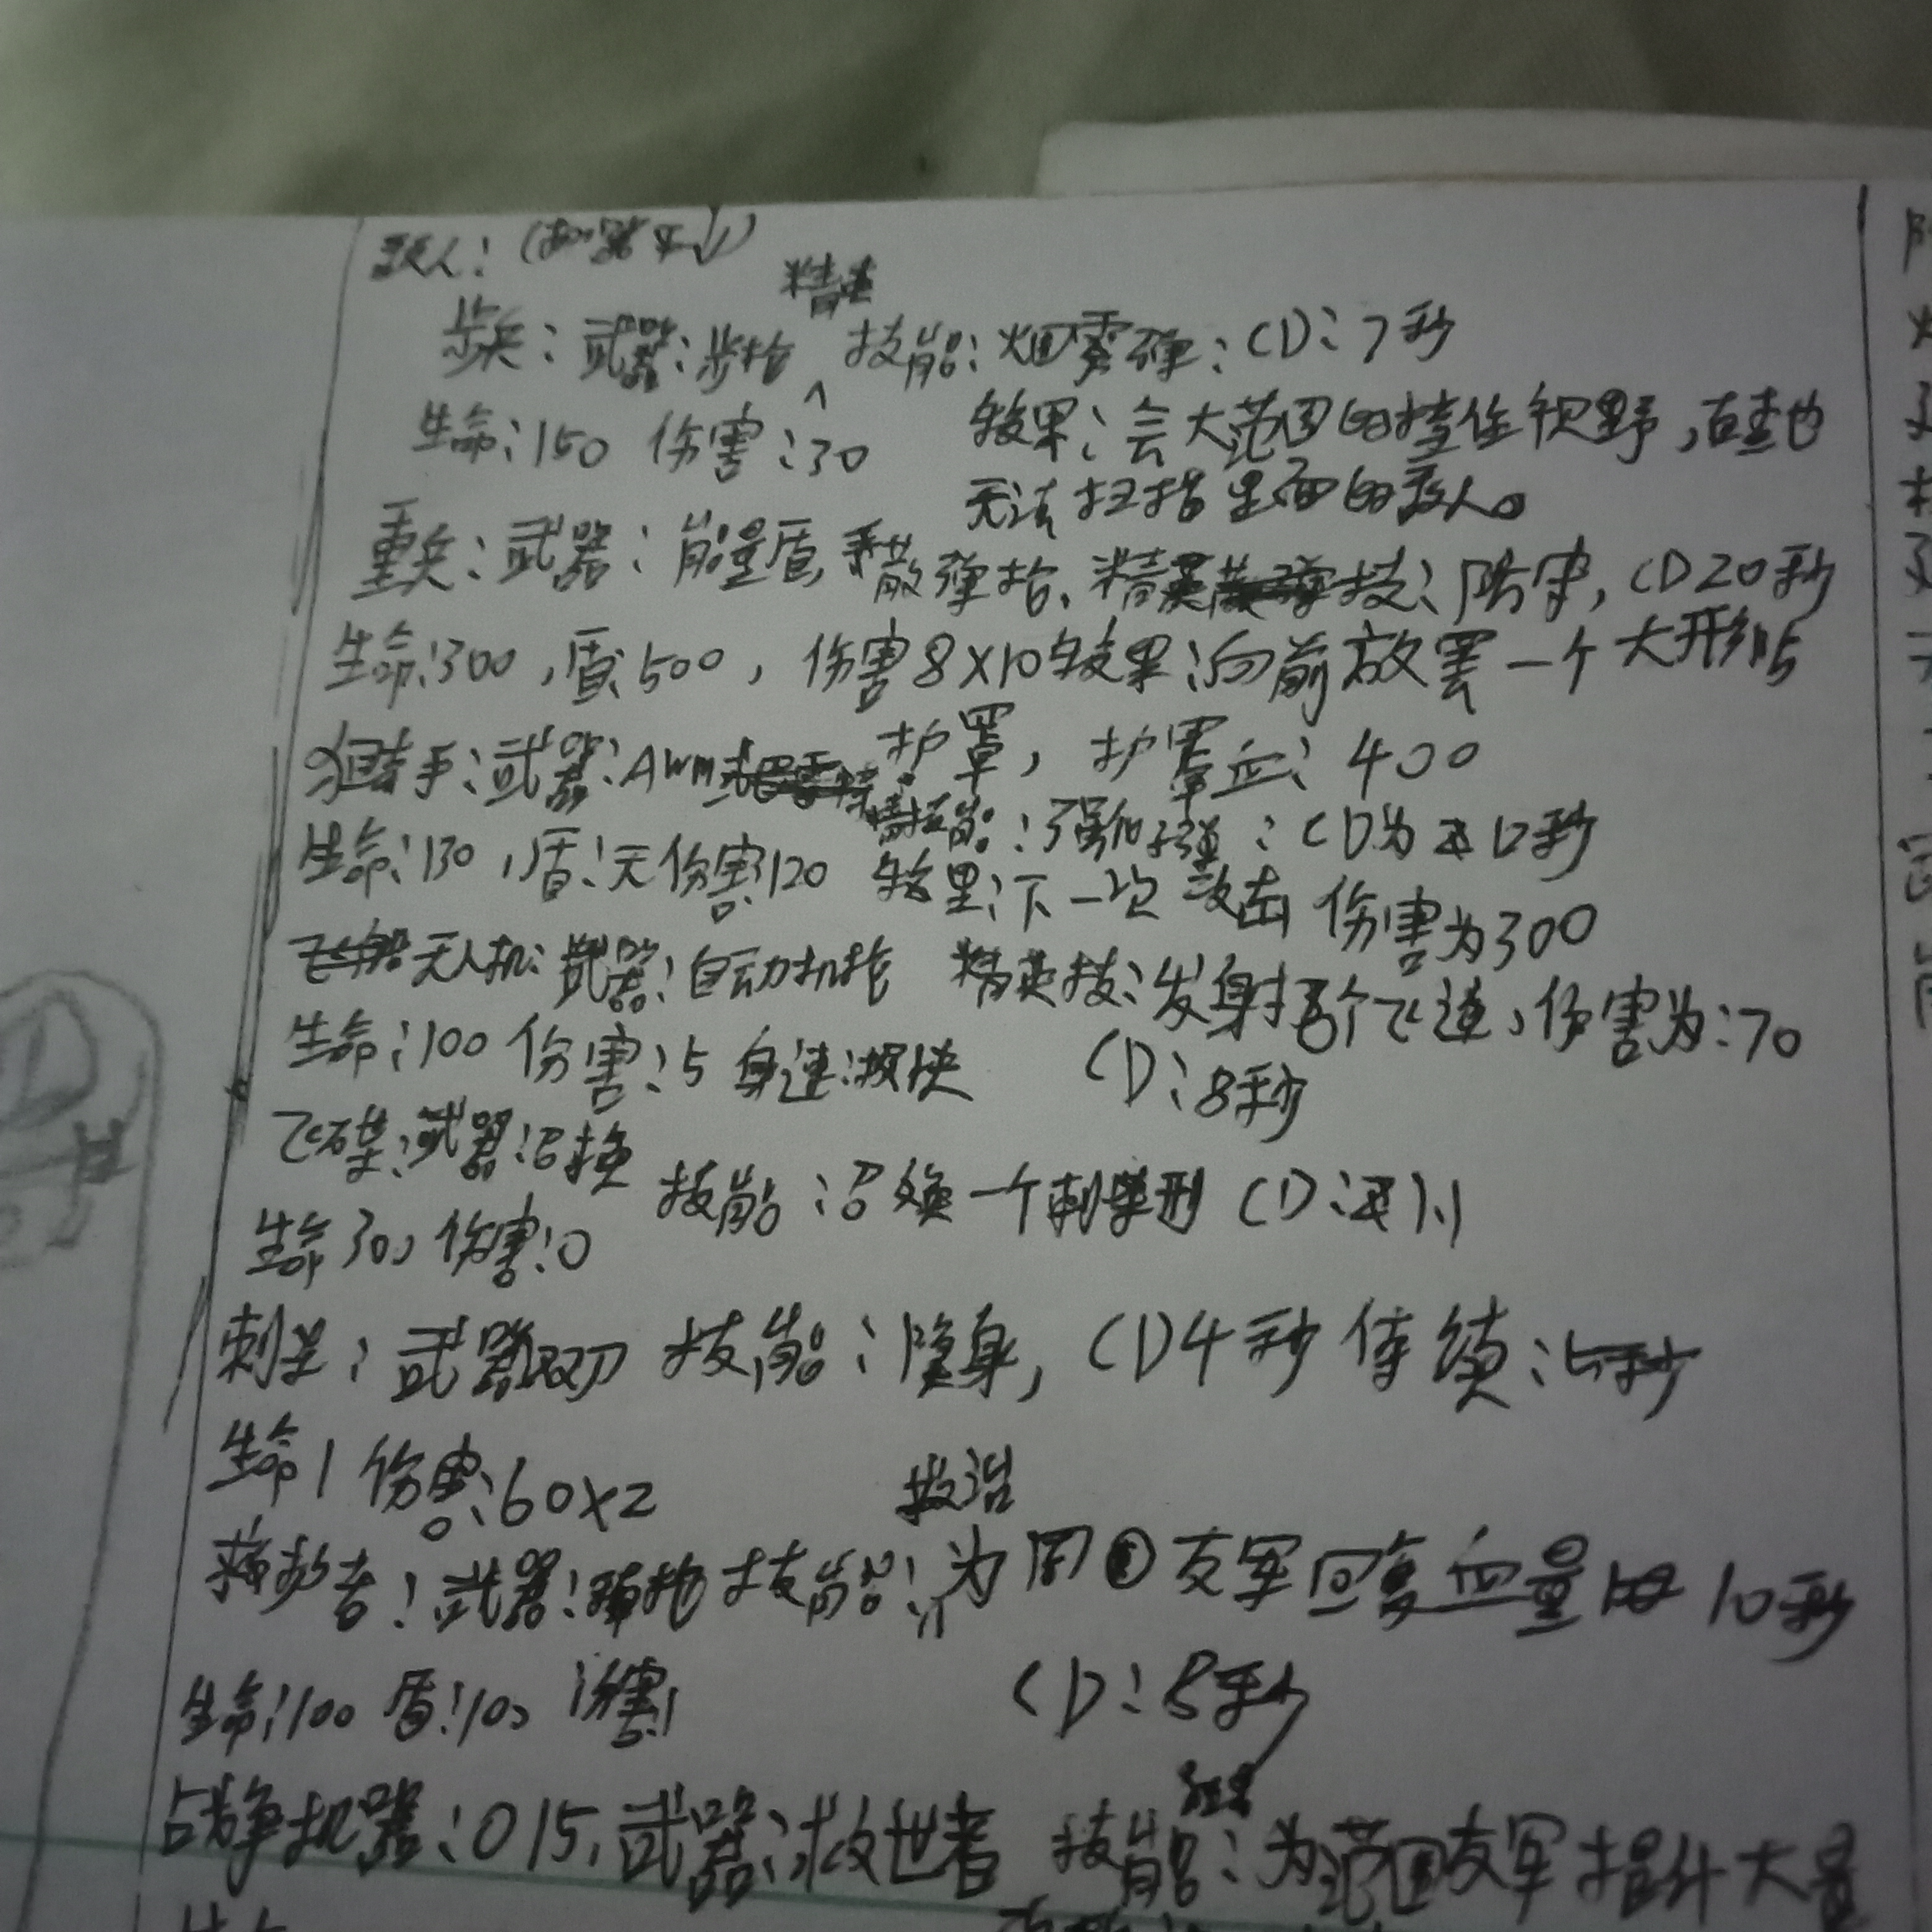 敌人：
精英
步兵：武器：步枪 技能：烟雾弹：CD：7秒
生命：150 伤害：30 效果：会大范围的挡住视野，
无法扫描里面的敌人。
重兵：武器：能量盾，散弹枪、精英技：防守，CD20秒
生命：300，盾：500，伤害8X10 效果：向前放置一个大形
护罩，护罩血：400
狙击手：武器：AWM
技能：强化子弹：CD为12秒
生命：130，盾：无 伤害：120 效果：下一次 伤害为300
无人机：武器：自动机枪 精英技：发射 个飞 ，伤害为：70
生命：100 伤害：5 身速：极快 CD：8秒
飞碟：武器：召换
技能：召唤一个刺 CD：
生命300 伤害：0
刺 ：武器双刀 技能：隐身，CD4秒 持续：5秒
生命1 伤害：60X2
：武器： 枪 技能：为周 友军回复血量 10秒
生命：100 盾：100 伤害：1 CD：8秒
战争机器：015，武器：救世者 技能：为范围友军提升大量